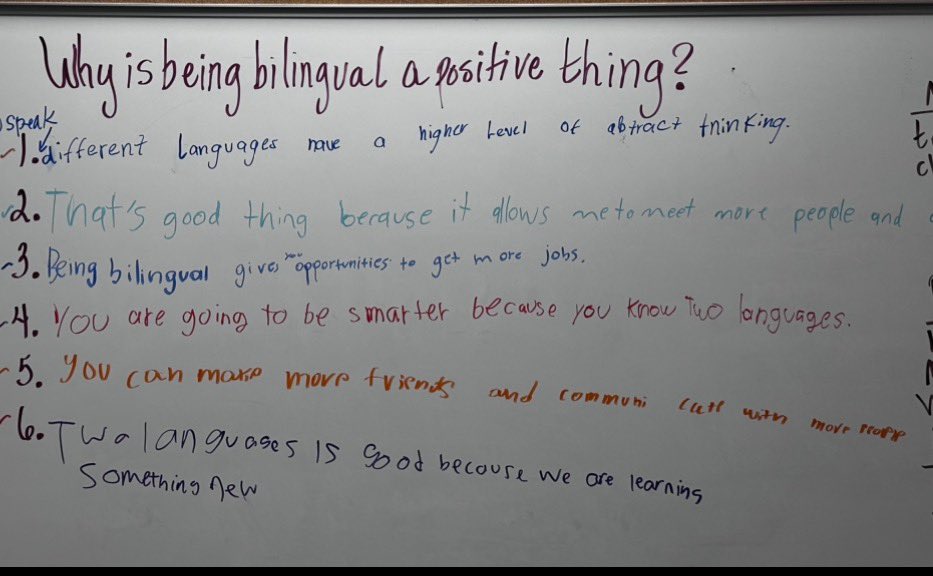 Why is being bilingual a positive thing?
speak
1. different languages have a higher level of abtract thinking.
2. That's good thing because it allows me to meet more people and
3. Being bilingual gives you opportunities to get more jobs.
4. You are going to be smarter because you know Two languages.
5. You can make more friends and communi cate with more people
6. Two languages is good becouse we are learning
something new